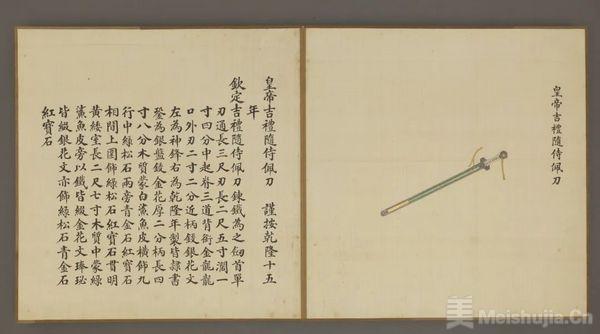 皇帝吉禮隨侍佩刀
皇帝吉禮隨侍佩刀　謹按乾隆十五
年
欽定吉禮隨侍佩刀鍊鐵為之首單
刃通長三尺刃長二尺五寸濶一
寸四分中起脊三道皆銜金龍龍
口外刃二寸二分近柄鋄銀花文
左為神鋒右為乾隆年製皆隸書
為銀盤鋄金花厚二分柄長四
寸八分木質蒙白鯊魚皮橫飾九
行中綠松石兩旁青金石紅寶石
相間上圍飾綠松石紅寶石貫明
黃緌室長二尺七寸木質中蒙綠
鯊魚皮旁以鐵皆鋄金花文琫珌
皆鋄銀花文亦飾綠松石青金石
紅寶石
美 Meishujia.Cn